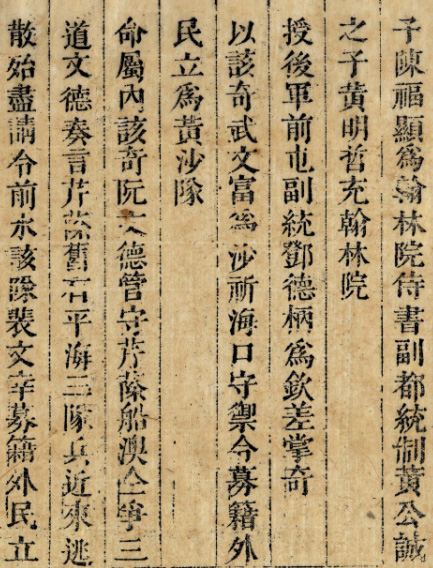 子陳福顯爲翰林院侍書副都統制黃公誠
之子黃明哲充翰林院
授後軍前屯副統鄧德柄爲欽差掌奇
以該奇武文富爲沙祈海口守禦令募籍外
民立爲黃沙隊
命屬內該奇阮文德管守芹蒢船澳仝寧三
道文德奏言芹蒢舊右平海三隊兵近來逃
散殆盡請令前水該隊裴文幸募籍外民立